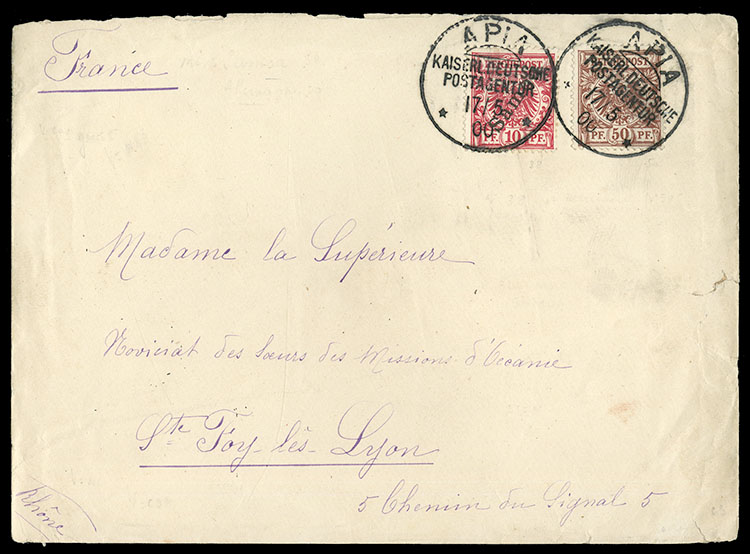 France
APIA
KAISERL. DEUTSCHE
POSTAGENTUR
17/5
00
POST
PF. 10 PF.
Samoa
APIA
KAISERL. DEUTSCHE
POSTAGENTUR
17/5
00
POST
PF. 50 PF.
Madame la Supérieure
Noviciat des Sœurs des Missions d'Océanie
Ste Foy-lès-Lyon
5 Chemin du Signal 5
Rhône